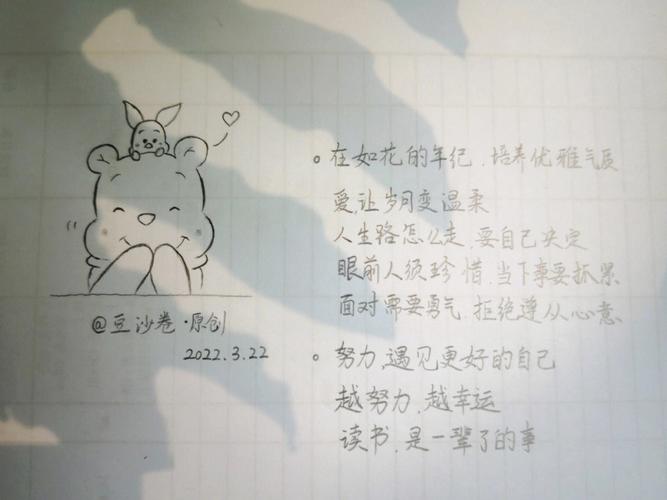 @豆沙卷·原创
2022.3.22
在如花的年纪.培养优雅气质
爱,让岁月变温柔
人生路怎么走,要自己决定
眼前人须珍惜.当下事要抓紧
面对需要勇气.拒绝遵从心意.
努力,遇见更好的自己
越努力,越幸运
读书,是一辈子的事